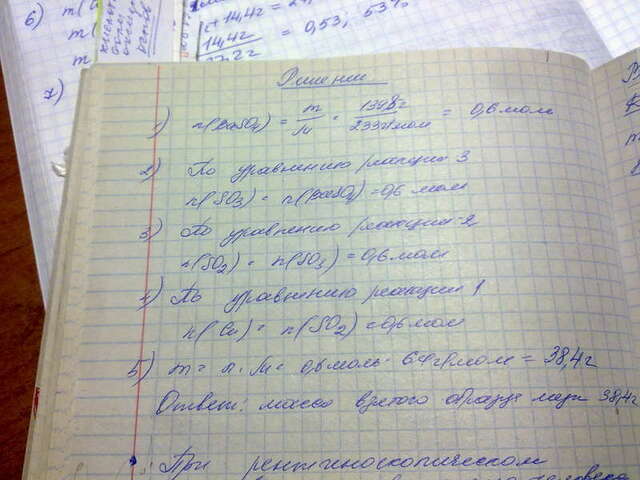 6) m(
m(
m
7)
14,4г =
14,4г = 0,53; 53%
Решение
1) n(BaSO₄) = m/M = 139,8г/233г/моль = 0,6 моль
2) По уравнению реакции 3
n(SO₃) = n(BaSO₄) = 0,6 моль
3) По уравнению реакции 2
n(SO₂) = n(SO₃) = 0,6 моль
4) По уравнению реакции 1
n(Cu) = n(SO₂) = 0,6 моль
5) m = n · M = 0,6 моль · 64г/моль = 38,4г
Ответ: масса взятого образца меди 38,4г
При рентгеноскопическом